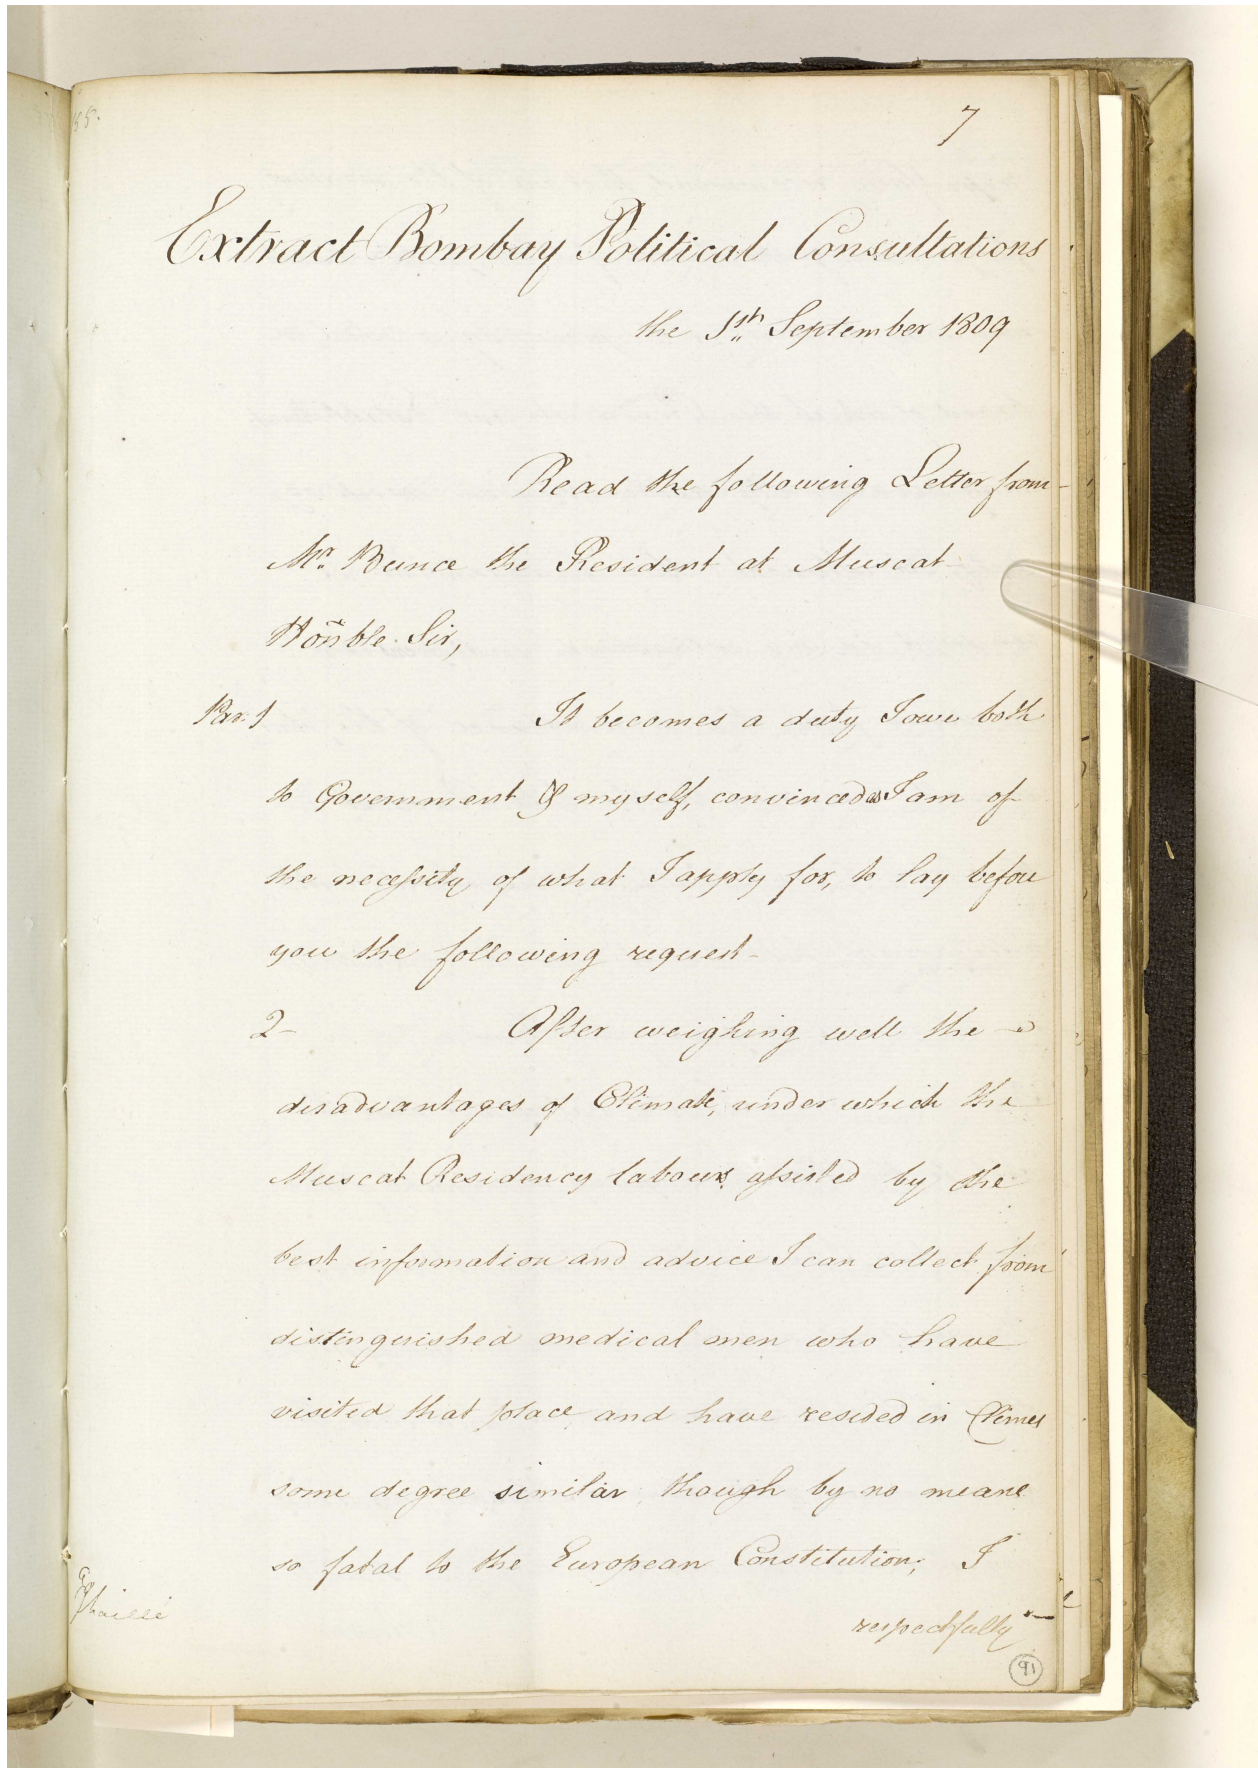 7
Extract Bombay Political Consultations
the 1st September 1809
Read the following Letter from
Mr. Bunce the Resident at Muscat
Honble Sir,
Par. 1 It becomes a duty I owe both
to Government & myself, convinced as I am of
the necessity of what I apply for, to lay before
you the following request-
2- After weighing well the
disadvantages of Climate, under which the
Muscat Residency labours, assisted by the
best information and advice I can collect from
distinguished medical men who have
visited that place and have resided in Climes
some degree similar though by no means
so fatal to the European Constitution; I
respectfully
91